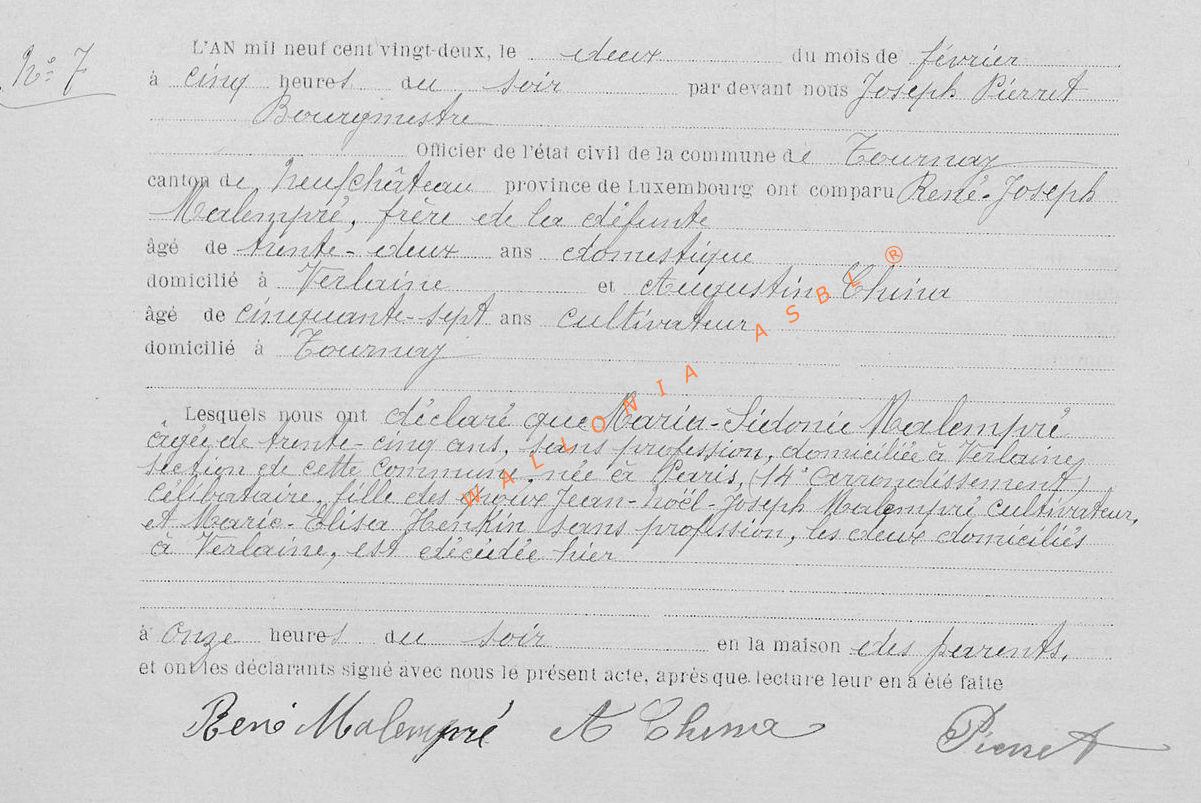 N° 7
L'AN mil neuf cent vingt-deux, le deux du mois de février
à cinq heures du soir par devant nous Joseph Pierret
Bourgmestre
Officier de l'état civil de la commune de Tournay
canton de Neufchâteau province de Luxembourg ont comparu René-Joseph
Malempré, frère de la défunte
âgé de trente-deux ans domestique
domicilié à Verlaine et Augustin China
âgé de cinquante-sept ans cultivateur
domicilié à Tournay
Lesquels nous ont déclaré que Maria-Sidonie Malempré
âgée de trente-cinq ans, sans profession, domiciliée à Verlaine,
section de cette commune, née à Paris, (14e arrondissement)
célibataire, fille des époux Jean-Noël-Joseph Malempré cultivateur,
et Marie-Elisa Henkin sans profession, les deux domiciliés
à Verlaine, est décédée hier
à onze heures du soir en la maison des parents.
et ont les déclarants signé avec nous le présent acte, après que lecture leur en a été faite
René Malempré A China Pierret
WALLONIA ASBL ®